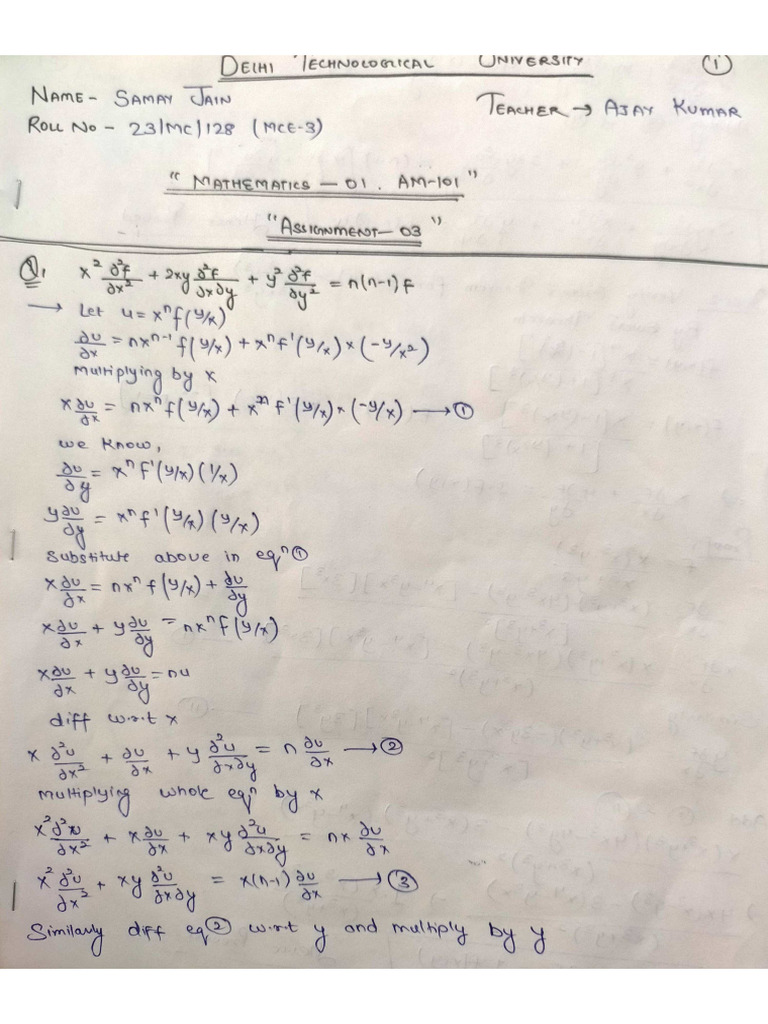 DELHI TECHNOLOGICAL UNIVERSITY ①
NAME- SAMAY JAIN
TEACHER → AJAY KUMAR
ROLL NO - 23/MC/128 (MCE-3)
"MATHEMATICS - 01. AM-101"
"ASSIGNMENT- 03"
Q1 x² ∂²f/∂x² + 2xy ∂²f/∂x∂y + y² ∂²f/∂y² = n(n-1)f
→ Let u = xⁿf(y/x)
∂u/∂x = nxⁿ⁻¹ f(y/x) + xⁿf'(y/x) × (-y/x²)
Multiplying by x
x∂u/∂x = nxⁿf(y/x) + xⁿf'(y/x) × (-y/x) → ①
we know,
∂u/∂y = xⁿf'(y/x)(1/x)
y∂u/∂y = xⁿf'(y/x)(y/x)
Substitute above in eqⁿ①
x∂u/∂x = nxⁿf(y/x) + ∂u/∂y
x∂u/∂x + y∂u/∂y = nxⁿf(y/x)
x∂u/∂x + y∂u/∂y = nu
diff w.r.t x
x ∂²u/∂x² + ∂u/∂x + y ∂²u/∂x∂y = n ∂u/∂x → ②
Multiplying whole eqⁿ by x
x²∂²u/∂x² + x∂u/∂x + xy ∂²u/∂x∂y = nx ∂u/∂x
x² ∂²u/∂x² + xy ∂²u/∂x∂y = x(n-1) ∂u/∂x → ③
Similarly diff eq② w.r.t y and multiply by y